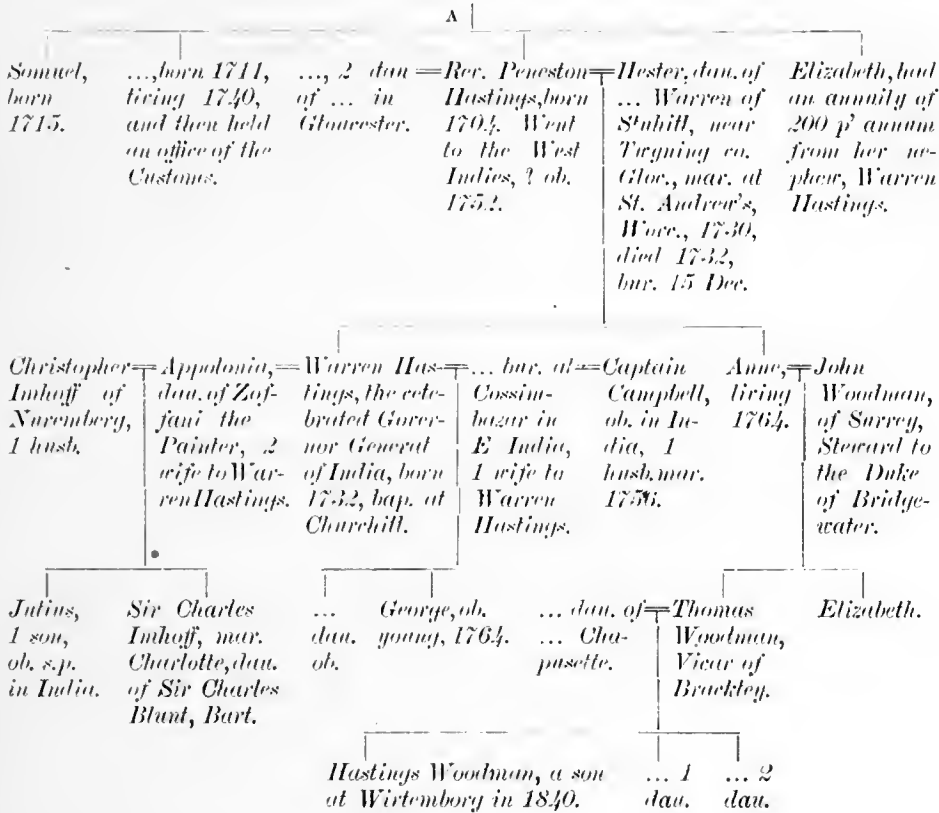 A
Samuel,
born
1715.
..., born 1711,
living 1740,
and then held
an office of the
Customs.
..., 2 dau
of ... in
Gloucester.
Rev. Peneston
Hastings, born
1704. Went
to the West
Indies, ? ob.
1752.
Hester, dau. of
... Warren of
Stubill, near
Twyning co.
Gloc., mar. at
St. Andrew's,
Worc., 1730,
died 1732,
bur. 15 Dec.
Elizabeth, had
an annuity of
200 p' annum
from her ne-
phew, Warren
Hastings.
Christopher
Imhoff of
Nuremberg,
1 husb.
Appolonia,
dau. of Zof-
fani the
Painter, 2
wife to War-
ren Hastings.
Warren Has-
tings, the cele-
brated Gover-
nor General
of India, born
1732, bap. at
Churchill.
... bur. at
Cossim-
bazar in
E India,
1 wife to
Warren
Hastings.
Captain
Campbell,
ob. in In-
dia, 1
husb. mar.
1756.
Anne,
living
1764.
John
Woodman,
of Surrey,
Steward to
the Duke
of Bridge-
water.
Julius,
1 son,
ob. s.p.
in India.
Sir Charles
Imhoff, mar.
Charlotte, dau.
of Sir Charles
Blunt, Bart.
...
dau.
ob.
George, ob.
young, 1764.
... dau. of
... Cha-
pusette.
Thomas
Woodman,
Vicar of
Brackley.
Elizabeth.
Hastings Woodman, a son
at Wirtemborg in 1840.
... 1
dau.
... 2
dau.